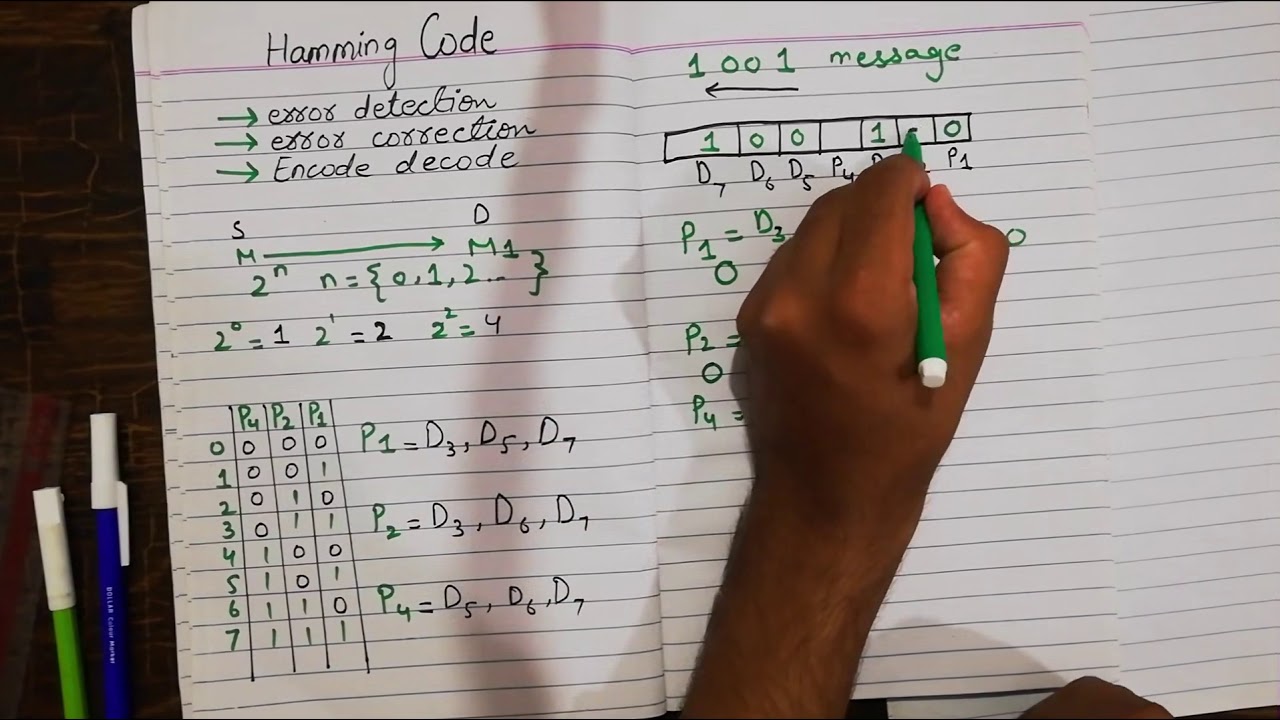 Hamming Code
→ error detection
→ error correction
→ Encode decode
S D
M → M1
2ⁿ n = {0,1,2...}
2⁰ = 1 2¹ = 2 2² = 4
P4 P2 P1
0 0 0 0
1 0 0 1
2 0 1 0
3 0 1 1
4 1 0 0
5 1 0 1
6 1 1 0
7 1 1 1
P1 = D3, D5, D7
P2 = D3, D6, D7
P4 = D5, D6, D7
1 0 0 1 message
←
1 0 0 1 0
D7 D6 D5 P4 P1
P1 = D3
0 0
P2 =
0
P4 =
DOLLAR Colour Marker